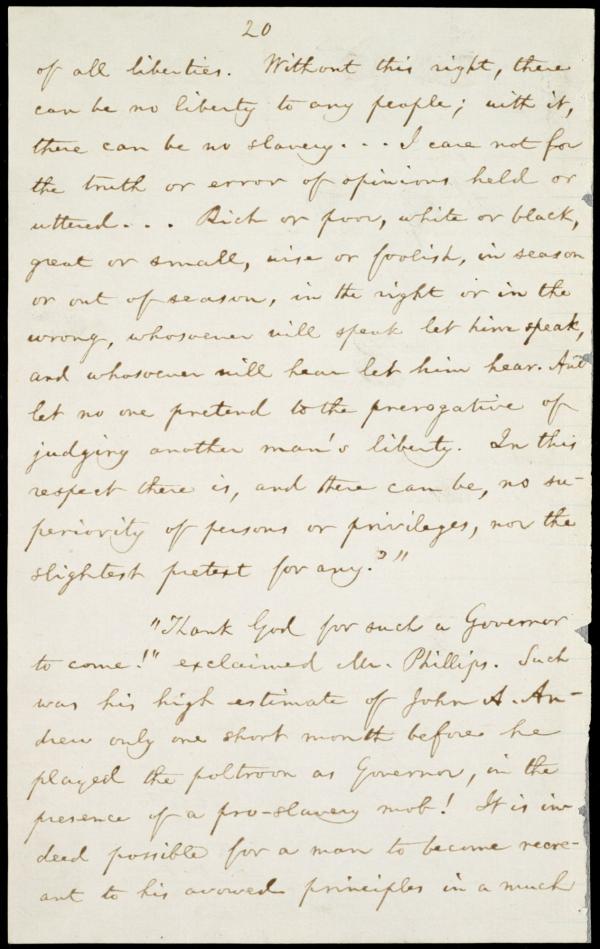 20
of all liberties. Without this right, there
can be no liberty to any people; with it,
there can be no slavery. . . I care not for
the truth or error of opinions held or
uttered. . . Rich or poor, white or black,
great or small, wise or foolish, in season
or out of season, in the right or in the
wrong, whosoever will speak let him speak,
and whosoever will hear let him hear. And
let no one pretend to the prerogative of
judging another man's liberty. In this
respect there is, and there can be, no su-
periority of persons or privileges, nor the
slightest pretext for any.'"
"Thank God for such a Governor
to come!" exclaimed Mr. Phillips. Such
was his high estimate of John A. An-
drew only one short month before he
played the poltroon as Governor, in the
presence of a pro-slavery mob! It is in-
deed possible for a man to become recre-
ant to his avowed principles in a much